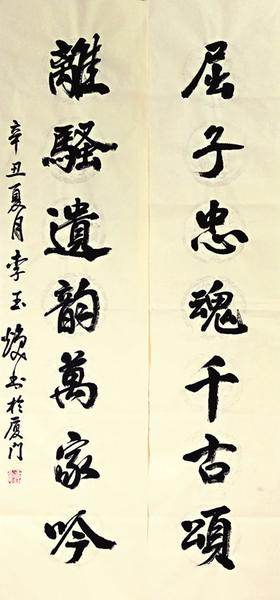 屈子忠魂千古頌
離騷遺韵萬家吟
辛丑夏月李玉焕书於厦门